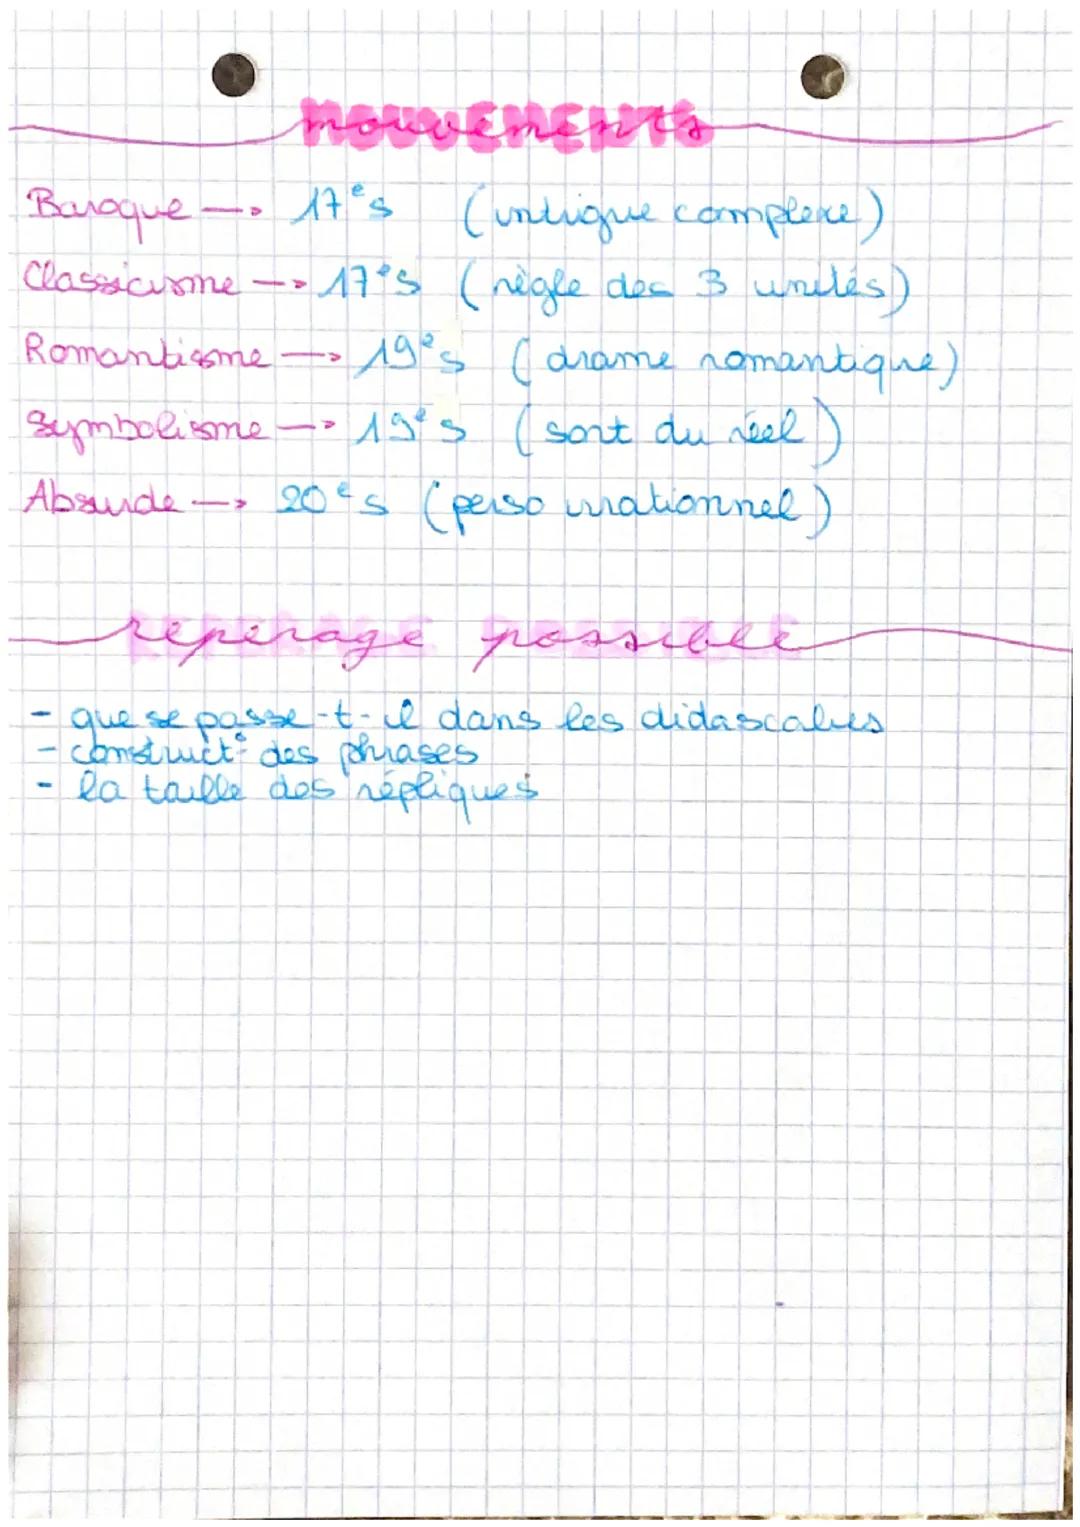 mouvements
Baroque → 17e s (intrigue complexe)
Classicisme → 17e s (règle des 3 unités)
Romantisme → 19e s (drame romantique)
Symbolisme → 19e s (sort du réel)
Absurde → 20e s (perso irrationnel)
repérage possible
- que se passe-t-il dans les didascalies
- construct° des phrases
- la taille des répliques